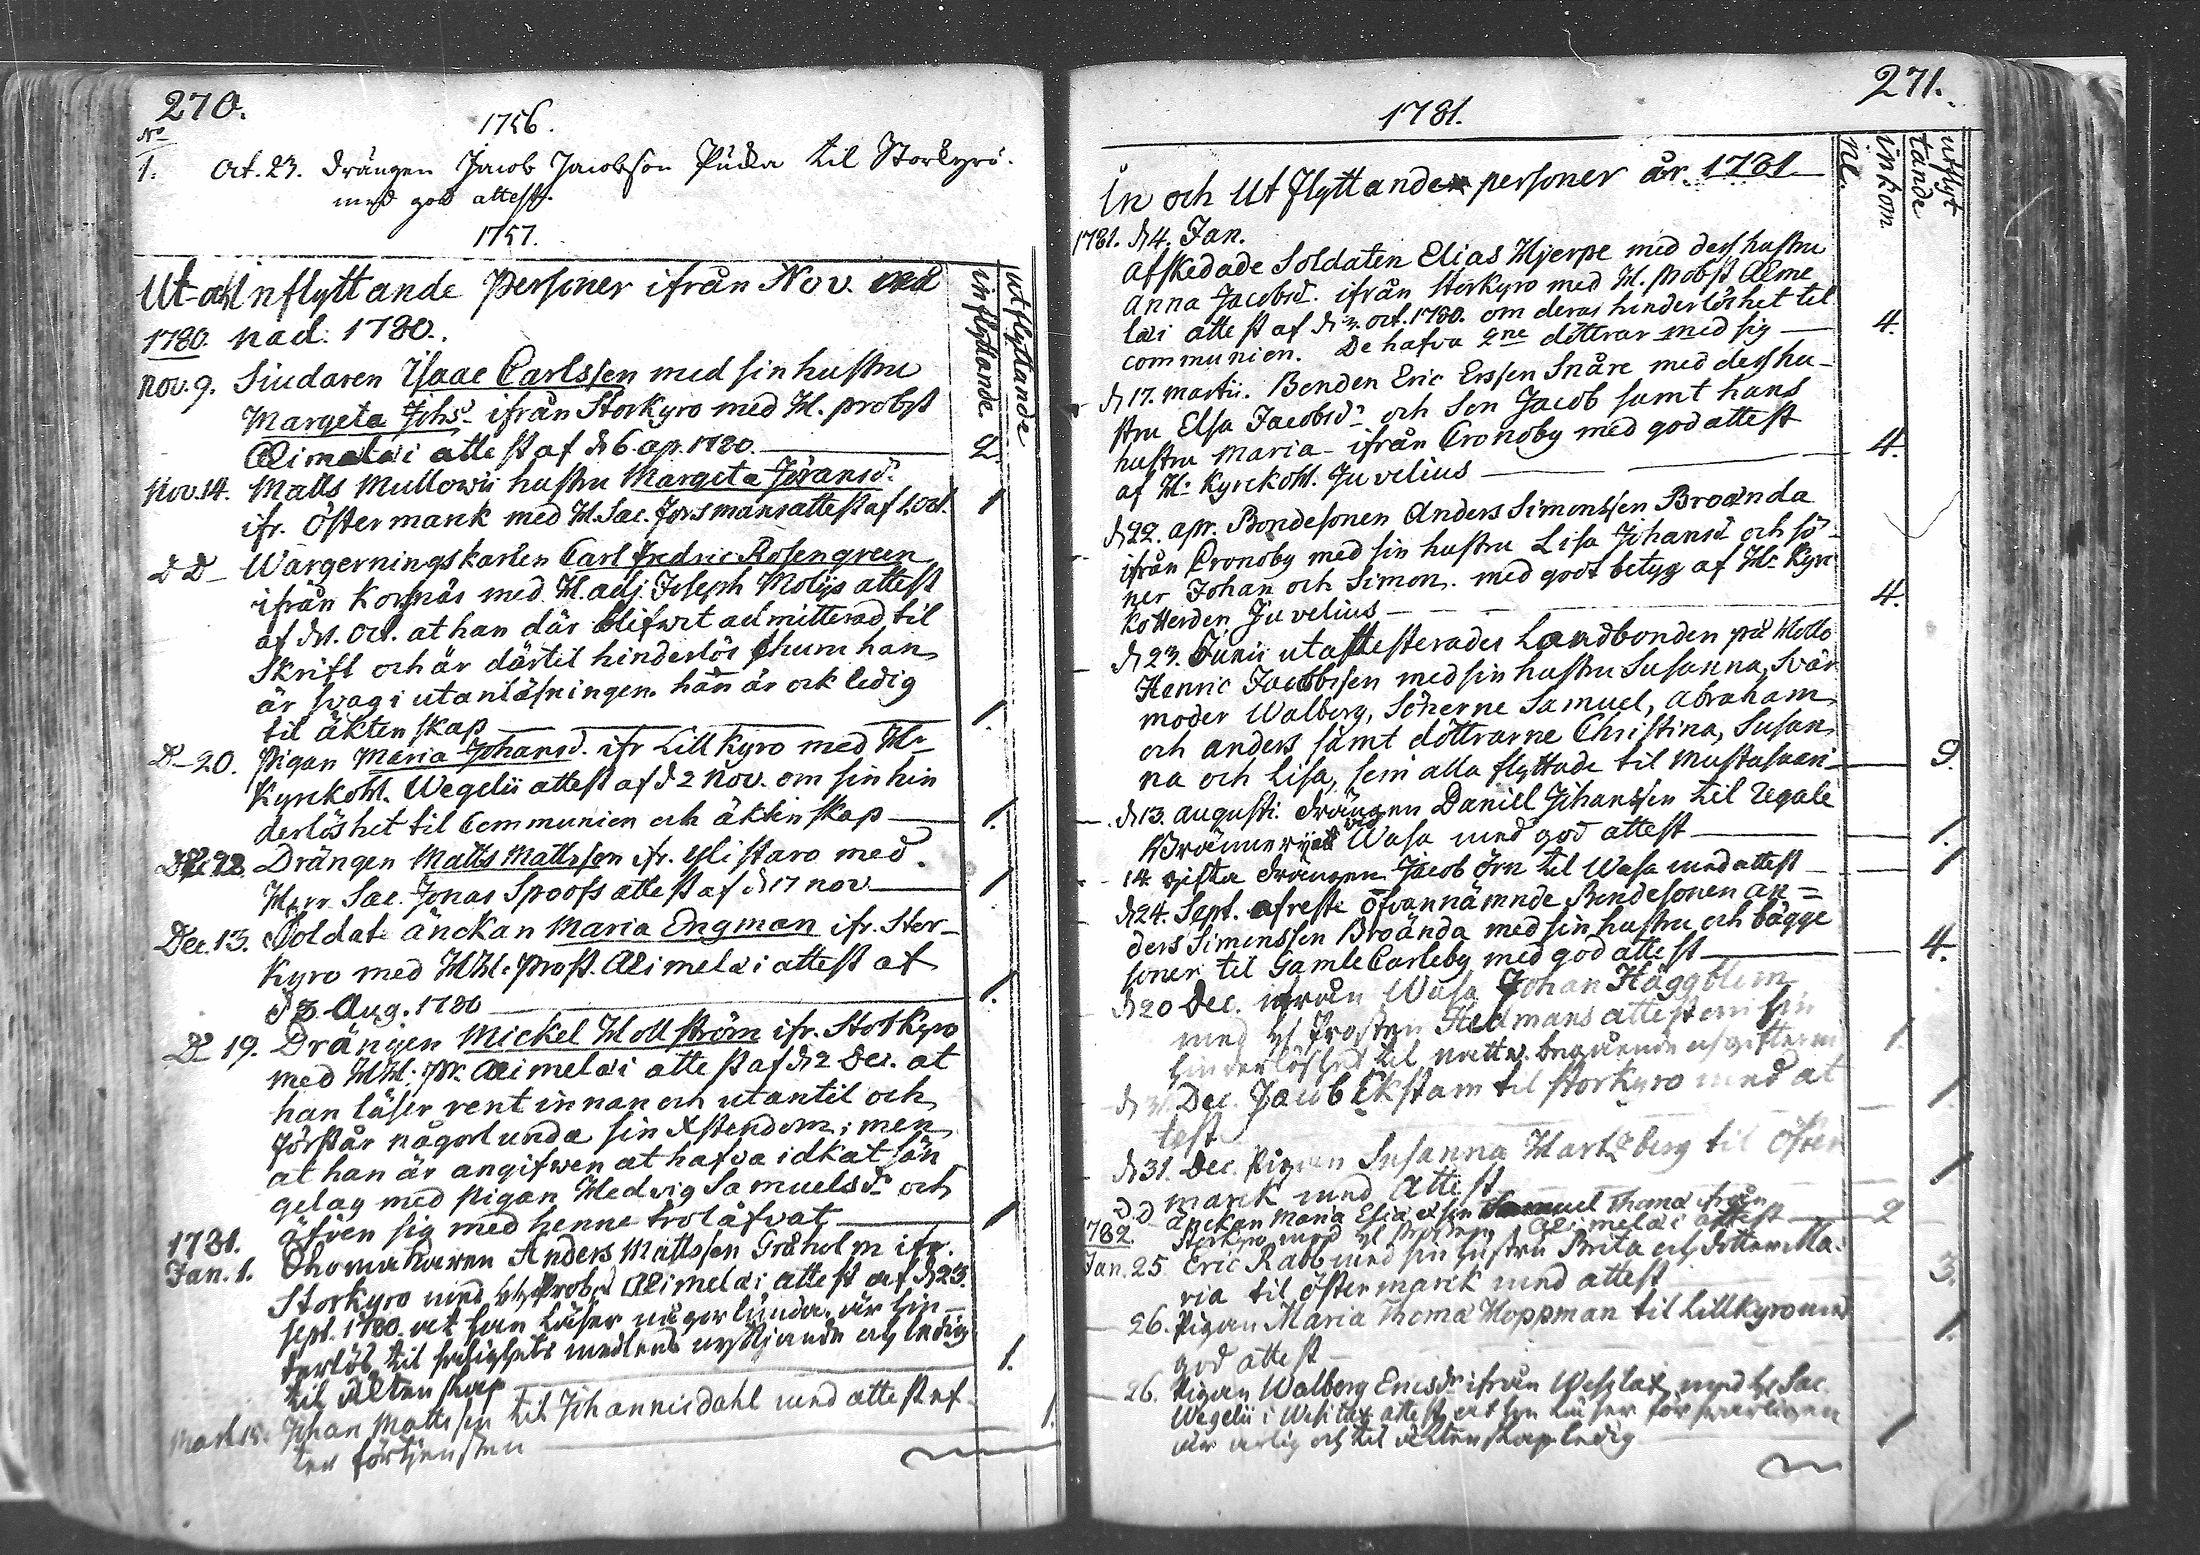 270.
No
1756.
1. Oct. 23. Drängen Jacob Jacobson til Storkyro.
med god attest.
1757.
Ut- och Inflyttande Personer ifrån Nov.
1780. nad. 1780.
inflyttande
utflyttande
Nov. 9. Isaac Carlssen med sin hustru
Margeta Johsdr ifrån Storkyro med H. probst
Alimelæi attest af d. 6. ap. 1780. 2.
Nov. 14. Matts hustru Margeta Göransdr
ifr. Östermark med H. Sac. Forsmans attest af 1. Oct. 1
D D Wärgerningskarlen Carl Fredric Rosengreen
ifrån Korsnäs med H. adj. Joseph attest
af d. 1. Oct. at han där blifwit admitterad til
Skrift och är därtil hinderlös ehuru han
är swag i utanläsningen. han är ock ledig
til äktenskap 1.
D 20. Pigan Maria Johansd. ifr Lillkyro med Hr
Kyrckoh. Wegelii attest af d 2 Nov. om sin hin
derlöshet til Communion och äktenskap 1.
Drängen Matts Mattssen ifr. Ylistaro med
Herr Sac. Jonas Spoofs attest af d 17 nov 1
Dec. 13. Soldate änckan Maria Engman ifr. Stor-
Kyro med HH. Prost. Alimelæi attest af
d 3. Aug. 1780 1.
D 19. Drängen Mickel Hollström ifr. Storkyro
med HH. pr. Alimelæi attest af d 2 Dec. at
han läser rent innan och utantil och
förstår någorlunda sin Xstendom; men
at han är angifwen at hafva idkat sän
gelag med pigan Hedvig Samuelsdr och
äfven sig med henne trolåfvat 1
1781.
Jan. 1. Skomakaren Anders Mattssen Gråholm ifr.
Storkyro med H Probst Alimelæi attest af d 23.
sept. 1780. at han läser någorlunda, är hin-
derlös til salighets medlens nyttjande och ledig
til Äktenskap 1.
Mart. 15. Johan Mattssen til Johannisdahl med attest ef-
ter förtjensten 1.
271.
1781.
In och Utflyttande personer år. 1781.
inkom
utflyt
tande
1781. d 4. Jan.
Afskedade Soldaten Elias Hjerpe med dess hustru
Anna Jacobsd. ifrån Storkyro med H. Probst Alime
læi attest af d 3. oct. 1780. om deras hinderlöshet til
communion. De hafva 2ne döttrar med sig 4.
d 17. Martii. Bonden Eric Erssen Snåre med dess hu-
stru Elsa Jacobsdr och Son Jacob samt hans
hustru Maria ifrån Cronoby med god attest
af Hr Kyrckoh. Juvelius 4.
d 22. apr. Bondesonen Anders Simonssen Broända
ifrån Cronoby med sin hustru Lisa Johansd. och sö-
ner Johan och Simon. med godt betyg af Hr Kyr-
koherden Juvelius 4.
d 23. Junii utattesterades Landbonden på
Henric Jacobssen med sin hustru Susanna, Svär
moder Walborg, Sönerne Samuel, Abraham
och Anders samt döttrarne Christina, Susan
na och Lisa, som alla flyttade til Mustasaari 9.
d 13. Augusti. Drängen Daniel Johanssen til Regale
Bränneriet vid Wasa med god attest 1.
14 gifta Drängen Jacob Örn til Wasa med attest 1
d 24. Sept. afreste ofvannämnde Bondesonen An=
ders Simonssen Broända med sin hustru och bägge
söner til Gamle Carleby med god attest 4.
d 20 Dec. ifrån Wasa Johan Häggblom
med H Prosten Hedmans attest om sin
hinderlöshet til nattv. begående och giftermål 1.
d Dec. Jacob Ekstam til Storkyro med at
test 1
d 31. Dec. Pigan Susanna Hartzberg til Öster
marck med attest 1
D. D Änckan Maria Esia. Thoma ifrån
Storkyro med H Prosten Alimelæi attest 2
1782.
Jan. 25 Eric Rabb med sin hustru Brita och dotter Ma-
ria til Östermarck med attest 3.
26. Pigan Maria Thoma Hoppman til Lillkyro med
god attest 1.
26. Pigan Walborg Ericsdr ifrån med H Sac.
Wegelii i attest at hon läser försvarligen
är ärlig och til äktenskap ledig 1